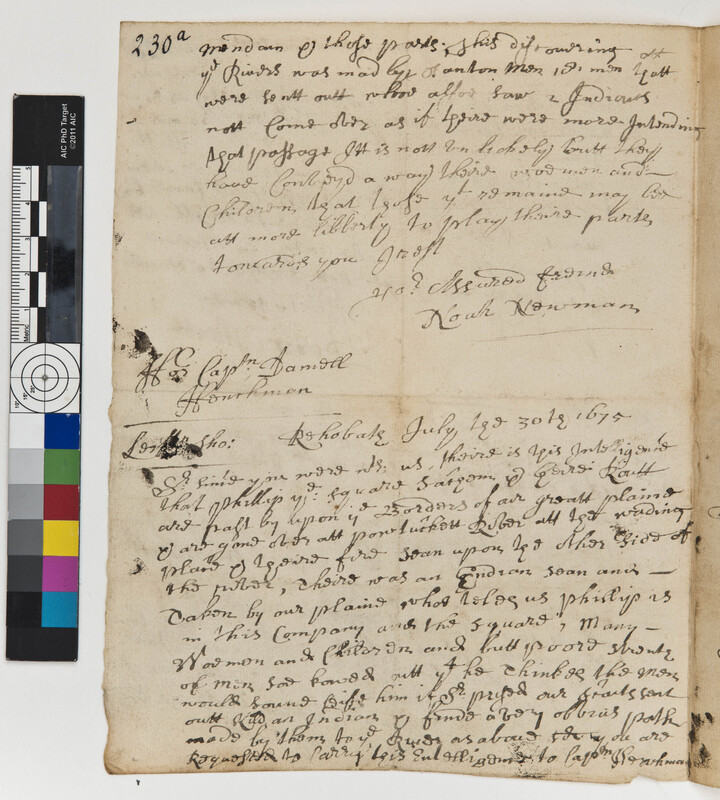 230a
mendam & those parts, this discovering off
ye Rivers was mad by Tanton Men, 18 men that
were sentt outt whoe allsoe saw 2 Indians
nott Come over as if theire were more Intending
that passage Itt is nott Unlickely butt they
have Conveyd a way theire woemen and
Children, that those yt remaine may bee
att more libberty to play theire parts
towards you I rest
yor Assured Freind
Noah Newman
Ffor Capn Daniell
Henchman
Rehobath July the 30th 1675
Sr Since you were wth us, theire is this Intelligence
that Phillip ye Square Sachem & theire Routt
are past by upon ye Borders of our greatt plaine
& are gone over att pawtuckett River att the wading
place & theire fire sean upon the other Side of
the River, Theire was an Endian sean and
Taken by our plaine whoe teles us Phillip is
in this Company and the Square, Many
Woemen and Children and butt poore strenth
of Men soe Cowed outt yt he Thinkes the Men
would if Sr prised our Scouts sent
outt an Indian & finde a very obvius path
made by them to ye River as above Sr you are
Requested to Carry this Intelligence to Capn Henchman